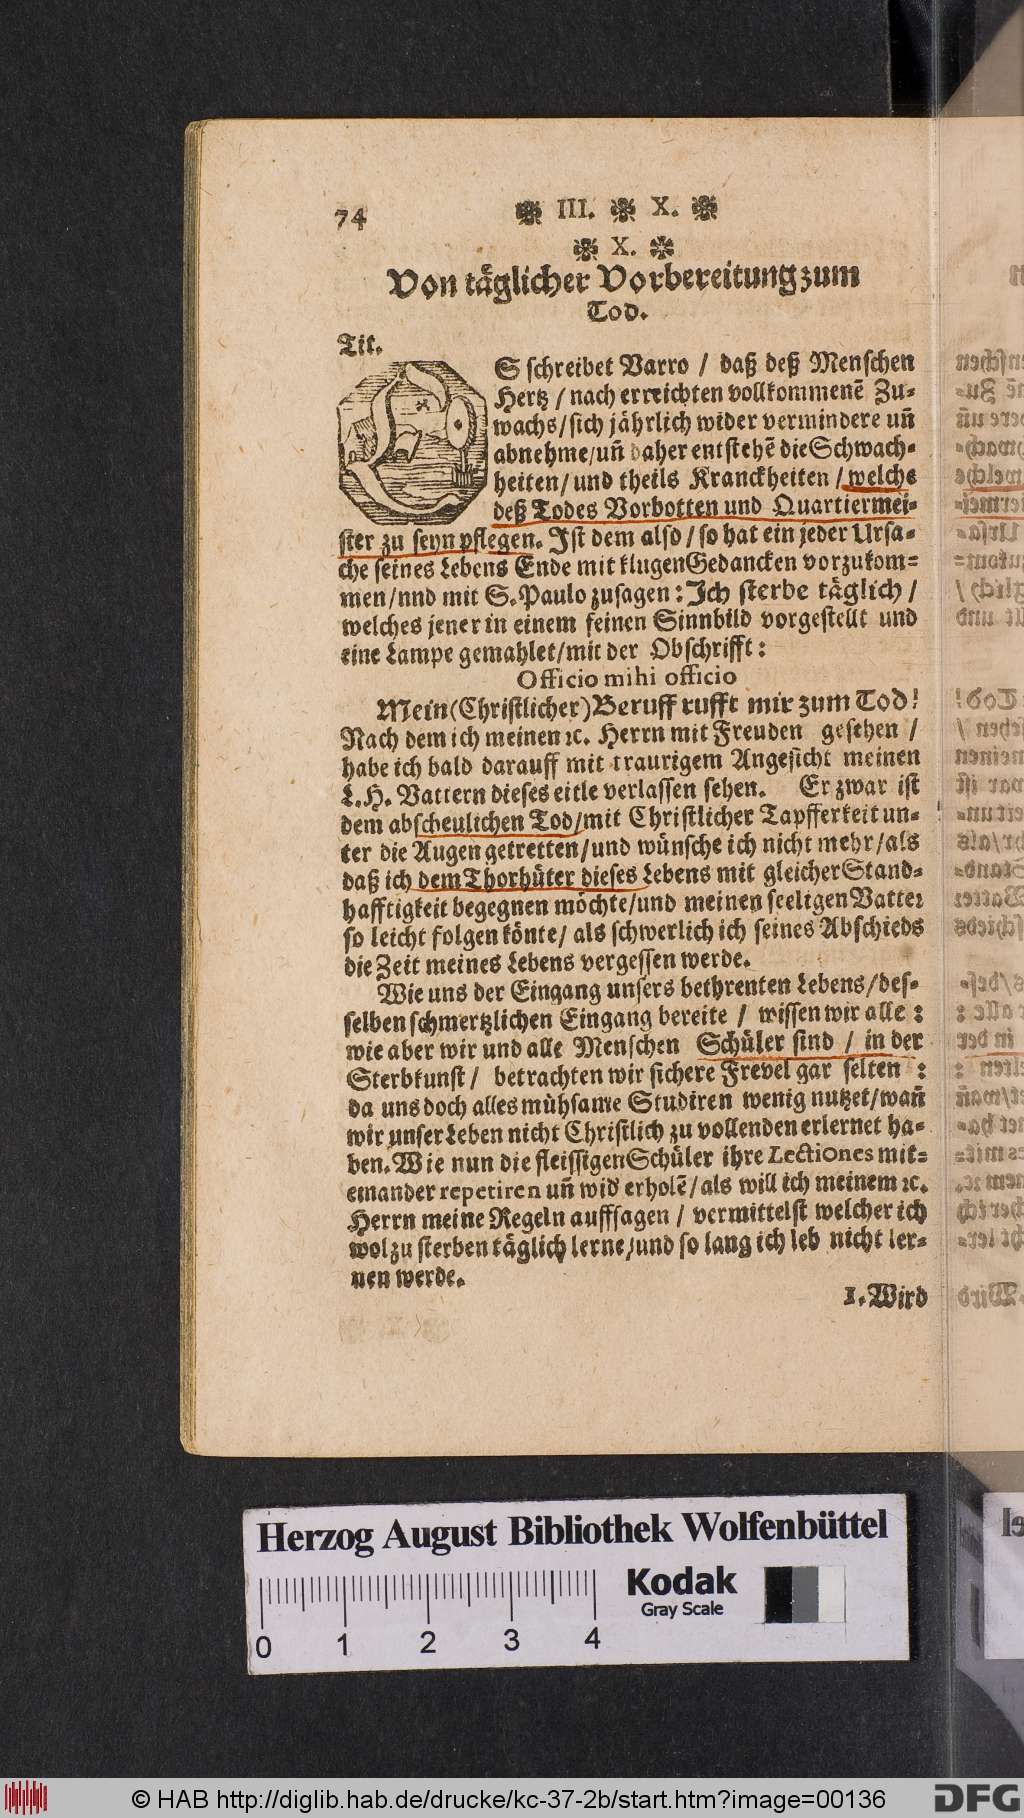 74 ❀ III. ❀ X. ❀
❀ X. ❀
Von täglicher Vorbereitung zum
Tod.
Tit.
ES schreibet Varro / daß deß Menschen
Hertz / nach erreichten vollkommenẽ Zu-
wachs / sich jährlich wider vermindere uñ
abnehme / uñ daher entstehẽ die Schwach-
heiten / und theils Kranckheiten / welche
deß Todes Vorbotten und Quartiermei-
ster zu seyn pflegen. Ist dem also / so hat ein jeder Ursa-
che seines Lebens Ende mit klugen Gedancken vorzukom-
men / nnd mit S. Paulo zusagen: Ich sterbe täglich /
welches jener in einem feinen Sinnbild vorgestellt und
eine Lampe gemahlet / mit der Obschrifft:
Officio mihi officio
Mein (Christlicher) Beruff rufft mir zum Tod!
Nach dem ich meinen ꝛc. Herrn mit Freuden gesehen /
habe ich bald darauff mit traurigem Angesicht meinen
L. H. Vattern dieses eitle verlassen sehen. Er zwar ist
dem abscheulichen Tod / mit Christlicher Tapfferkeit un-
ter die Augen getretten / und wünsche ich nicht mehr / als
daß ich dem Thorhüter dieses Lebens mit gleicher Stand-
hafftigkeit begegnen möchte / und meinen seeligen Vatter
so leicht folgen könte / als schwerlich ich seines Abschieds
die Zeit meines Lebens vergessen werde.
Wie uns der Eingang unsers bethrenten Lebens / des-
selben schmertzlichen Eingang bereite / wissen wir alle:
wie aber wir und alle Menschen Schüler sind / in der
Sterbkunst / betrachten wir sichere Frevel gar selten:
da uns doch alles mühsame Studiren wenig nutzet / wañ
wir unser Leben nicht Christlich zu vollenden erlernet ha-
ben. Wie nun die fleissigen Schüler ihre Lectiones mit-
einander repetiren uñ wid' erholẽ / als will ich meinem ꝛc.
Herrn meine Regeln auffsagen / vermittelst welcher ich
wol zu sterben täglich lerne / und so lang ich leb nicht ler-
nen werde.
1. Wird
Herzog August Bibliothek Wolfenbüttel
Kodak
Gray Scale
0 1 2 3 4
© HAB http://diglib.hab.de/drucke/kc-37-2b/start.htm?image=00136
DFG